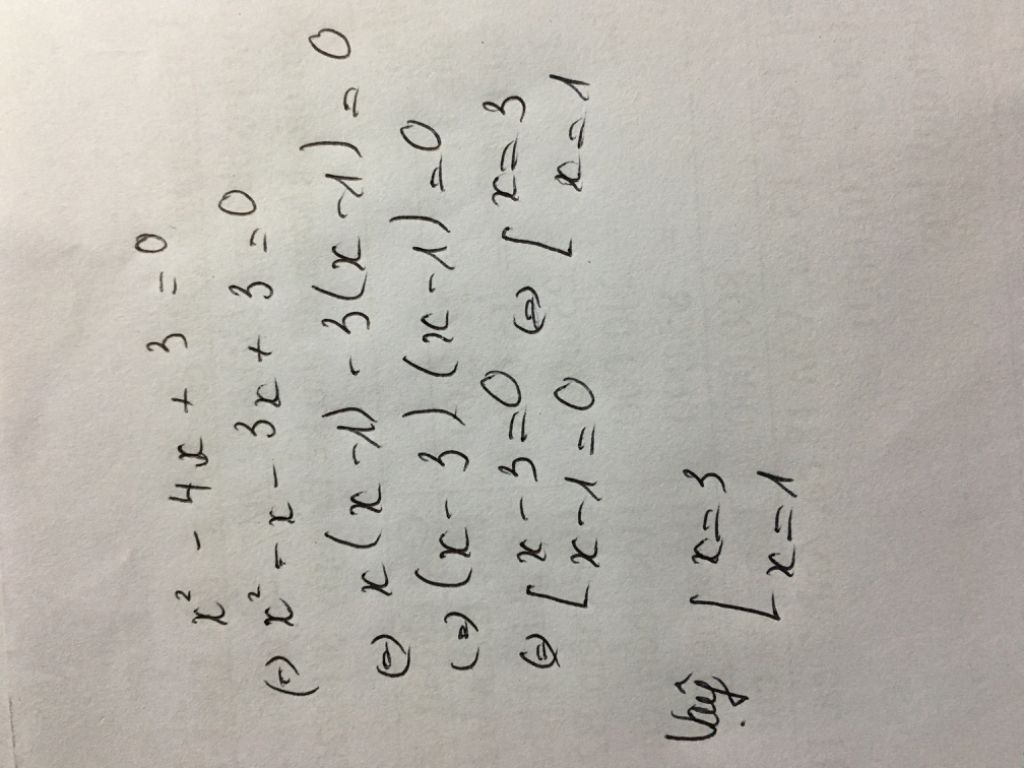 x² - 4x + 3 = 0
⇔ x² - x - 3x + 3 = 0
⇔ x(x-1) - 3(x-1) = 0
⇔ (x-3)(x-1) = 0
⇔ [ x-3=0 ⇔ [ x=3
x-1=0 x=1
Vậy [ x=3
x=1